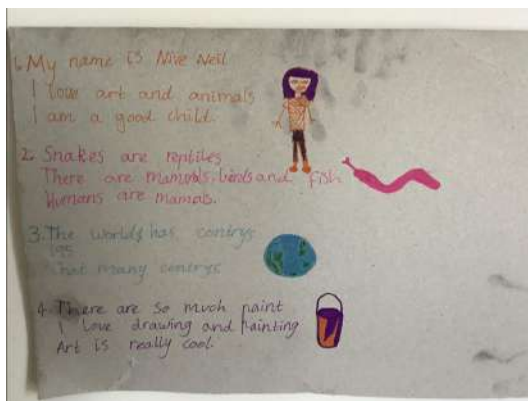 1. My name is Nive Neil
I love art and animals
I am a good child.
2. Snakes are reptiles
There are mamals, birds and fish
Humans are mamals.
3. The worlds has contrys
195
that many contrys
4. There are so much paint
I love drawing and painting
Art is really cool.